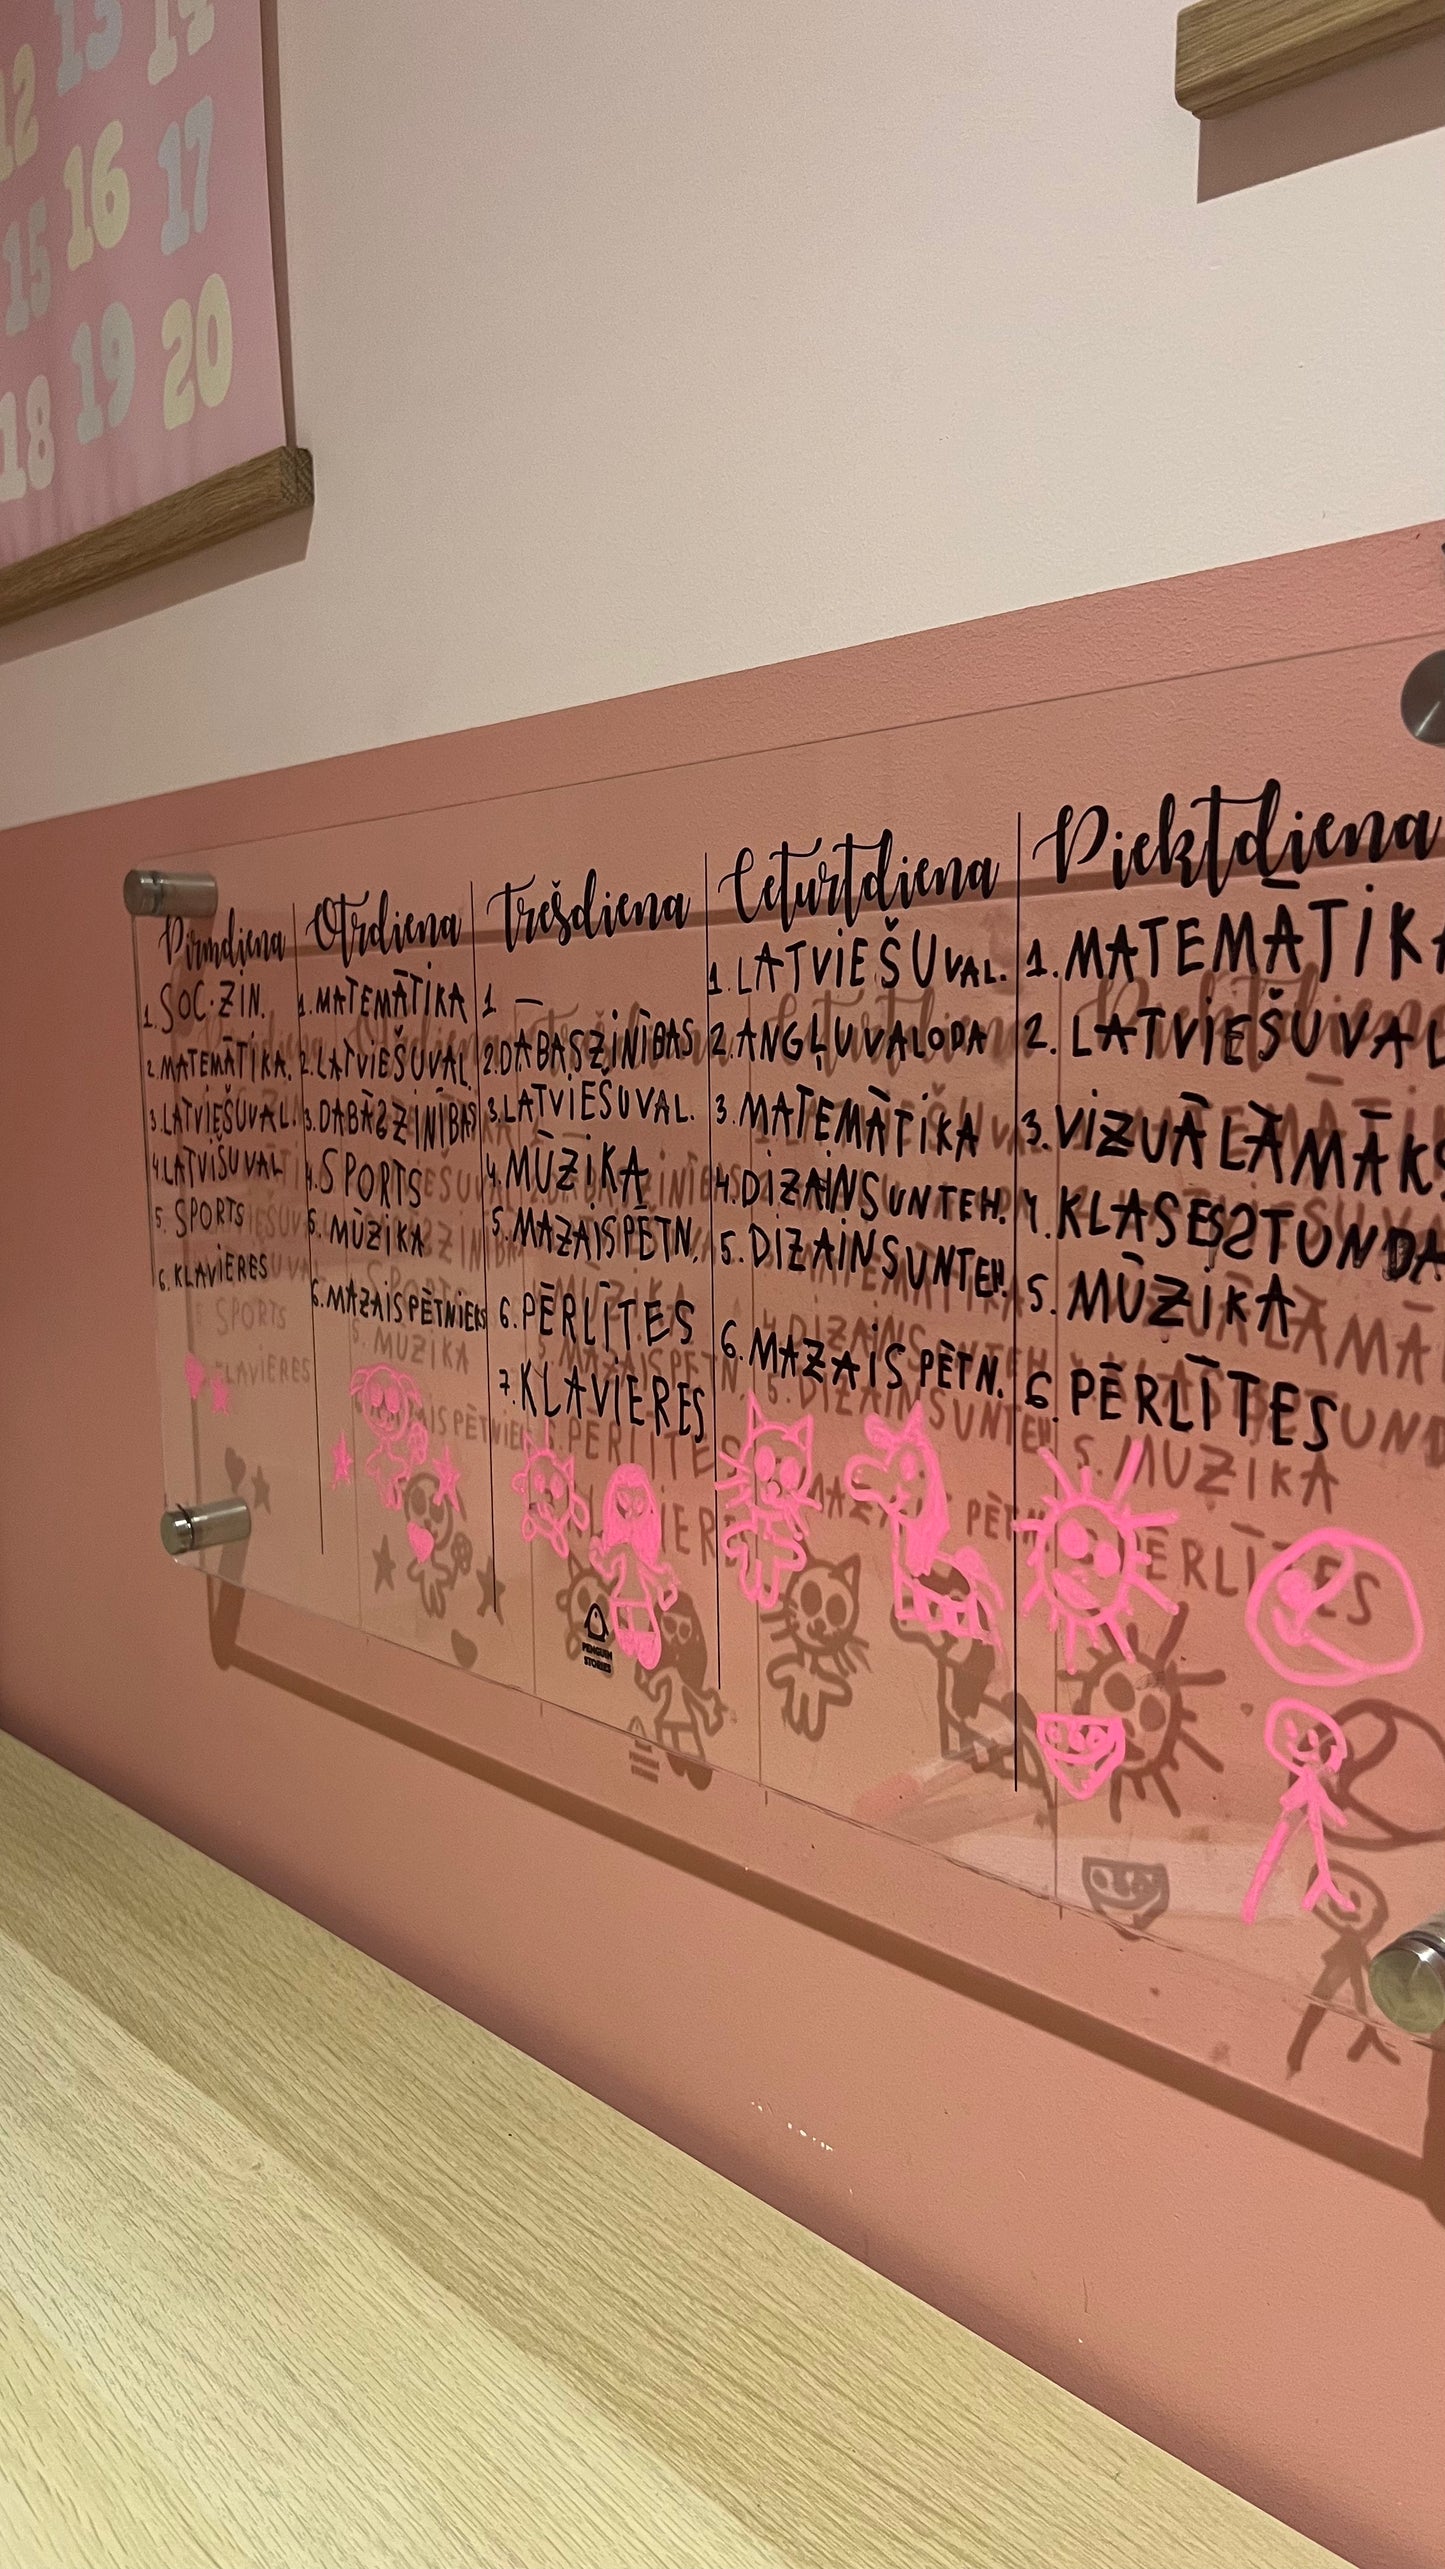 12 13 14
15 16 17
18 19 20
Pirmdiena
1. SOC. ZIN.
2. MATEMĀTIKA.
3. LATVIEŠU VAL.
4. LATVIŠU VAL
5. SPORTS
6. KLAVIERES
Otrdiena
1. MATEMĀTIKA
2. LATVIEŠU VAL.
3. DABĀSZINĪBAS
4. SPORTS
5. MŪZIKA
6. MAZAIS PĒTNIEKS
Trešdiena
1. —
2. DABASZINĪBAS
3. LATVIEŠU VAL.
4. MŪZIKA
5. MAZAIS PĒTN.
6. PĒRLĪTES
7. KLAVIERES
PENGUIN
STORIES
Ceturtdiena
1. LATVIEŠU VAL.
2. ANGĻU VALODA
3. MATEMĀTIKA
4. DIZAINS UN TEH.
5. DIZAINS UN TEH.
6. MAZAIS PĒTN.
Piektdiena
1. MATEMĀTIKA
2. LATVIEŠU VAL
3. VIZUĀLĀ MĀKS
4. KLASES STUNDA
5. MŪZIKA
6. PĒRLĪTES